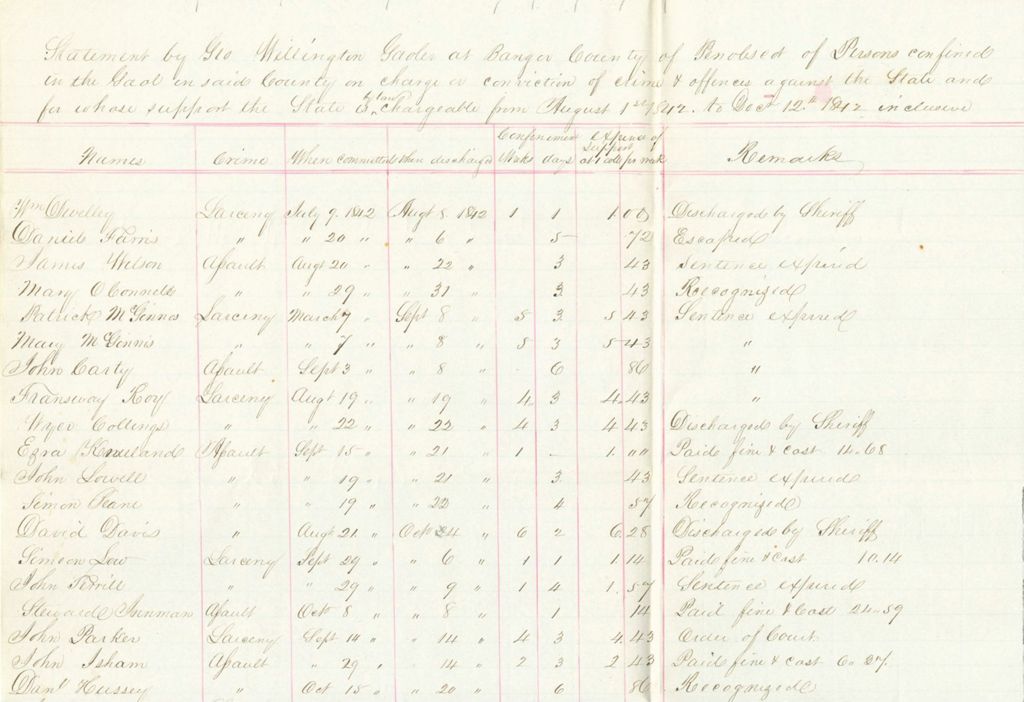 Statement by Geo Wellington Gaoler at Bangor County of Penobscot of Persons confined
in the Gaol in said County on charge or conviction of crime & offences against the State and
for whose support the State is chargeable from August 1st 1842. to Dec 12th 1842 inclusive
Names Crime When committed When discharged Confinement Weeks days expense of support at 1 doll pr week Remarks
Wm Larceny July 9. 1842 Augt 8. 1842 1 1 1.00 Discharged by Sheriff
Daniel Farris " " 20 " " 6 " 5 72 Escaped
James Wilson Assault Augt 20 " " 22 " 3 43 Sentence expired
Mary O Connels " " 29 " " 31 " 3 43 Recognized
Patrick McGennos Larceny March 7 " Sept 8 " 5 3 5 43 Sentence expired
Mary McGennis " " 7 " " 8 " 5 3 5 43 "
John Carty Assault Sept 3 " " 8 " 6 86 "
Roy Larceny Augt 19 " " 19 " 4 3 4.43 "
Collings " " 22 " " 22 " 4 3 4 43 Discharged by Sheriff
Ezra Kneeland Assault Sept 15 " " 21 " 1 - 1. "" Paid fine & cost 14.68
John Lowell " " 19 " " 21 " 3 43 Sentence expired
Simon Peane " " 19 " " 22 " 4 57 Recognized
David Davis " Augt 21 " Oct 4 " 6 2 6.28 Discharged by Sheriff
Simeon Low Larceny Sept 29 " " 6 " 1 1 1.14 Paid fine & cost 10.14
John Ferrill " " 29 " " 9 " 1 4 1.57 Sentence expired
Steward Assault Oct 8 " " 8 " 1 14 Paid fine & Cost 24.59
John Parker Larceny Sept 14 " " 14 " 4 3 4.43 Order of Court
John Isham Assault " 29 " " 14 " 2 3 2 43 Paid fine & cost 6.27
Danl Hussey " Oct 15 " " 20 " 6 86 Recognized